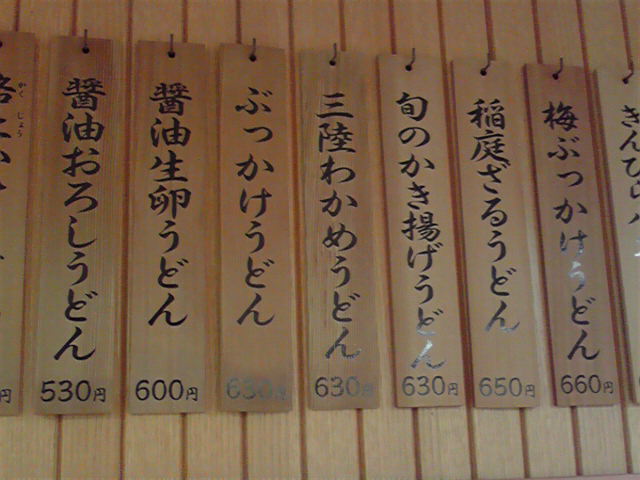 醤油おろしうどん
530円
醤油生卵うどん
600円
ぶっかけうどん
630円
三陸わかめうどん
630円
旬のかき揚げうどん
630円
稲庭ざるうどん
650円
梅ぶっかけうどん
660円
きんぴら